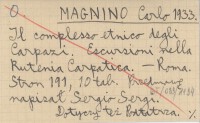 O. MAGNINO Carlo 1933.
Il complesso etnico degli
Carpazi. Escursioni nella
Rutenia Carpatica. — Roma.
Stron 191, 10 tab.
napisał Sergio Sergi.
Dotyczy też